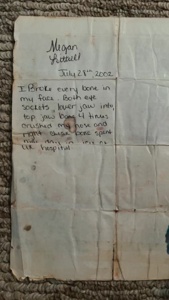 Megan
July 21st, 2002
I Broke every bone in
my face. Both eye
sockets, lower jaw into,
top jaw bone 4 times
crushed my nose and
right cheek bone spent
day in
hospital